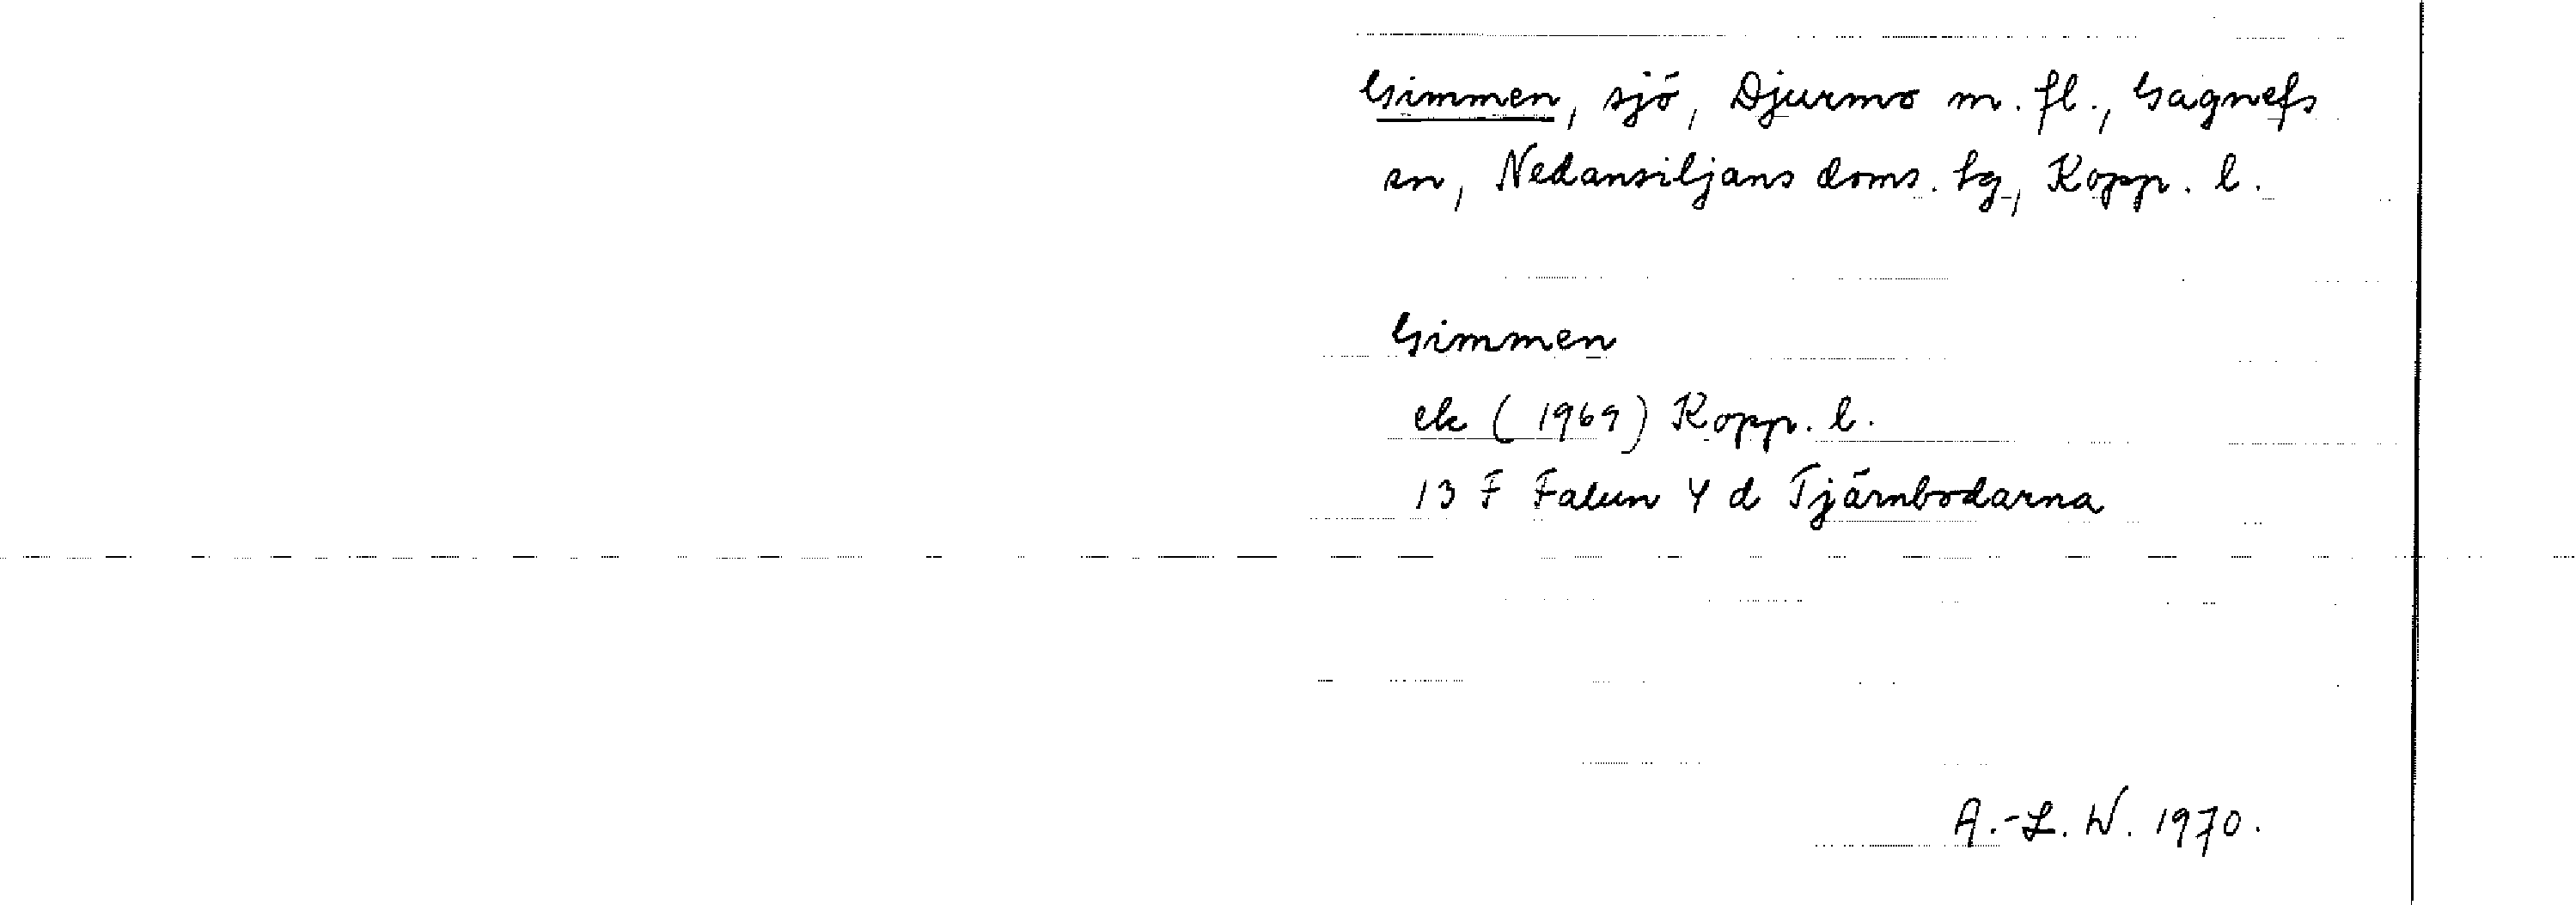 Gimmen, sjö, Djurmo m. fl., Gagnefs
sn, Nedansiljans doms. tg, Kopp. l.
Gimmen
ek (1969) Kopp. l.
13 F Falun Y d Tjärnbodarna
A.-L. W. 1970.